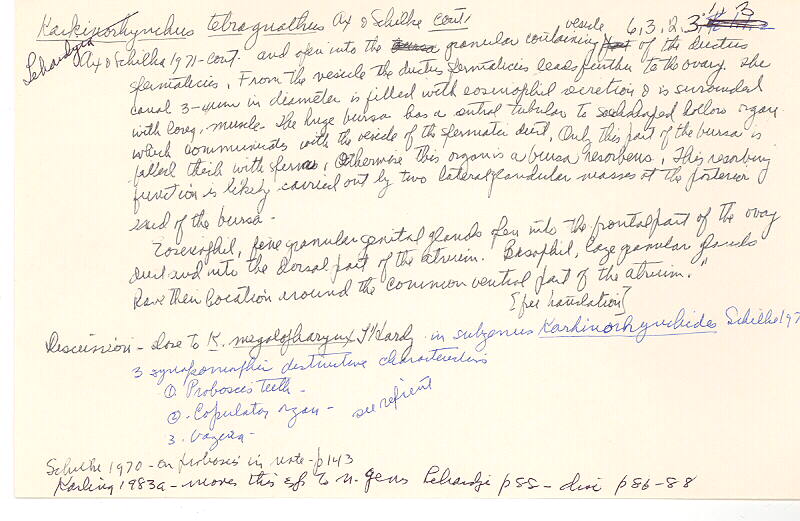 Karkinorhynchus tetragnathus Ax & Schilke cont.
Lehardyia
6, 3, 12, 3, 3
Ax & Schilke 1971-cont. and open into the granular containing vesicle of the ductus
spermaticus. From the vesicle the ductus spermaticus leads further to the ovary. The
canal 3-4µm in diameter is filled with eosinophil secretion & is surrounded
with long. muscle. The huge bursa has a central tubular to sackshaped hollow organ
which communicates with the vesicle of the spermatic duct. Only this part of the bursa is
filled with sperm, Otherwise this organ is a bursa resorbens. This resorbing
function is likely carried out by two lateral glandular masses at the posterior
end of the bursa.
Eosinophil, fine granular genital glands open into the frontal part of the ovary
duct and into the dorsal part of the atrium. Basophil, large granular glands
have their location around the common ventral part of the atrium."
[free translation]
Discussion - close to K. megalopharynx L'Hardy in subgenus Karkinorhynchides Schilke 197
3 synapomorphic distinctive characteristics
① Proboscis teeth -
②. Copulatory organ - see reprint
3. Vagina -
Schilke 1970 - on proboscis in note - p143
Karling 1983a - moves this sp to n. genus p88 - disc p86-88